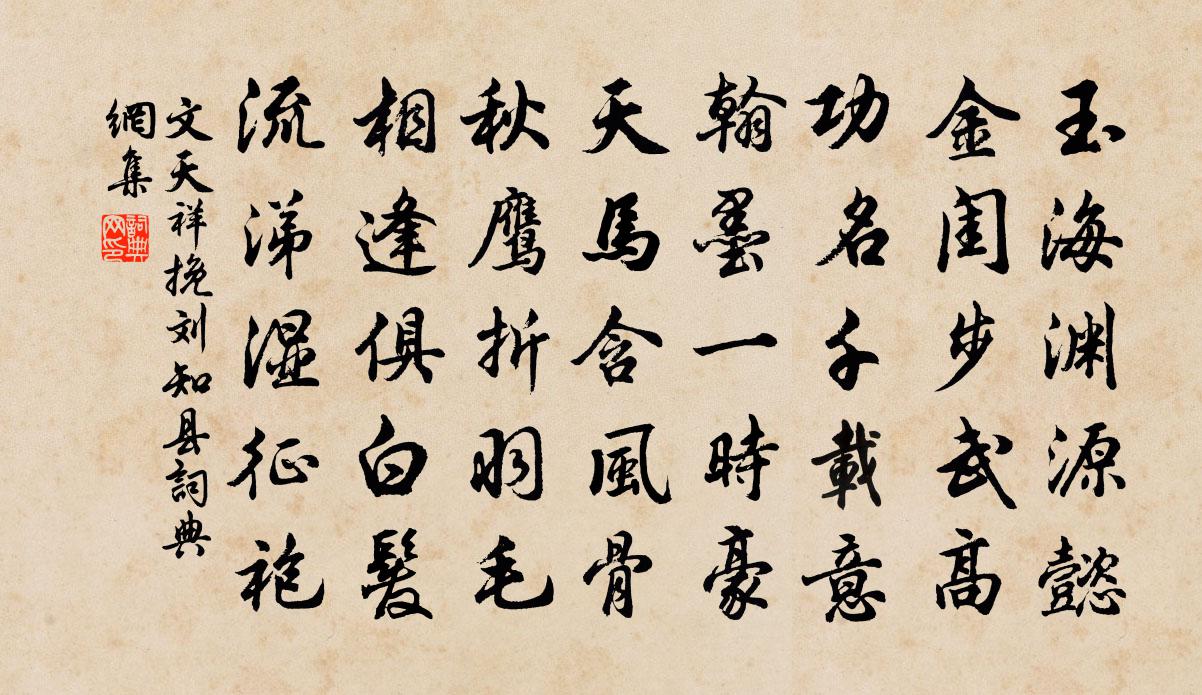 玉海渊源懿
金闺步武高
功名千載意
翰墨一時豪
天馬含風骨
秋鹰折羽毛
相逢俱白髮
流涕湿征袍
文天祥挽刘知县詞典
網集
詞典
网印